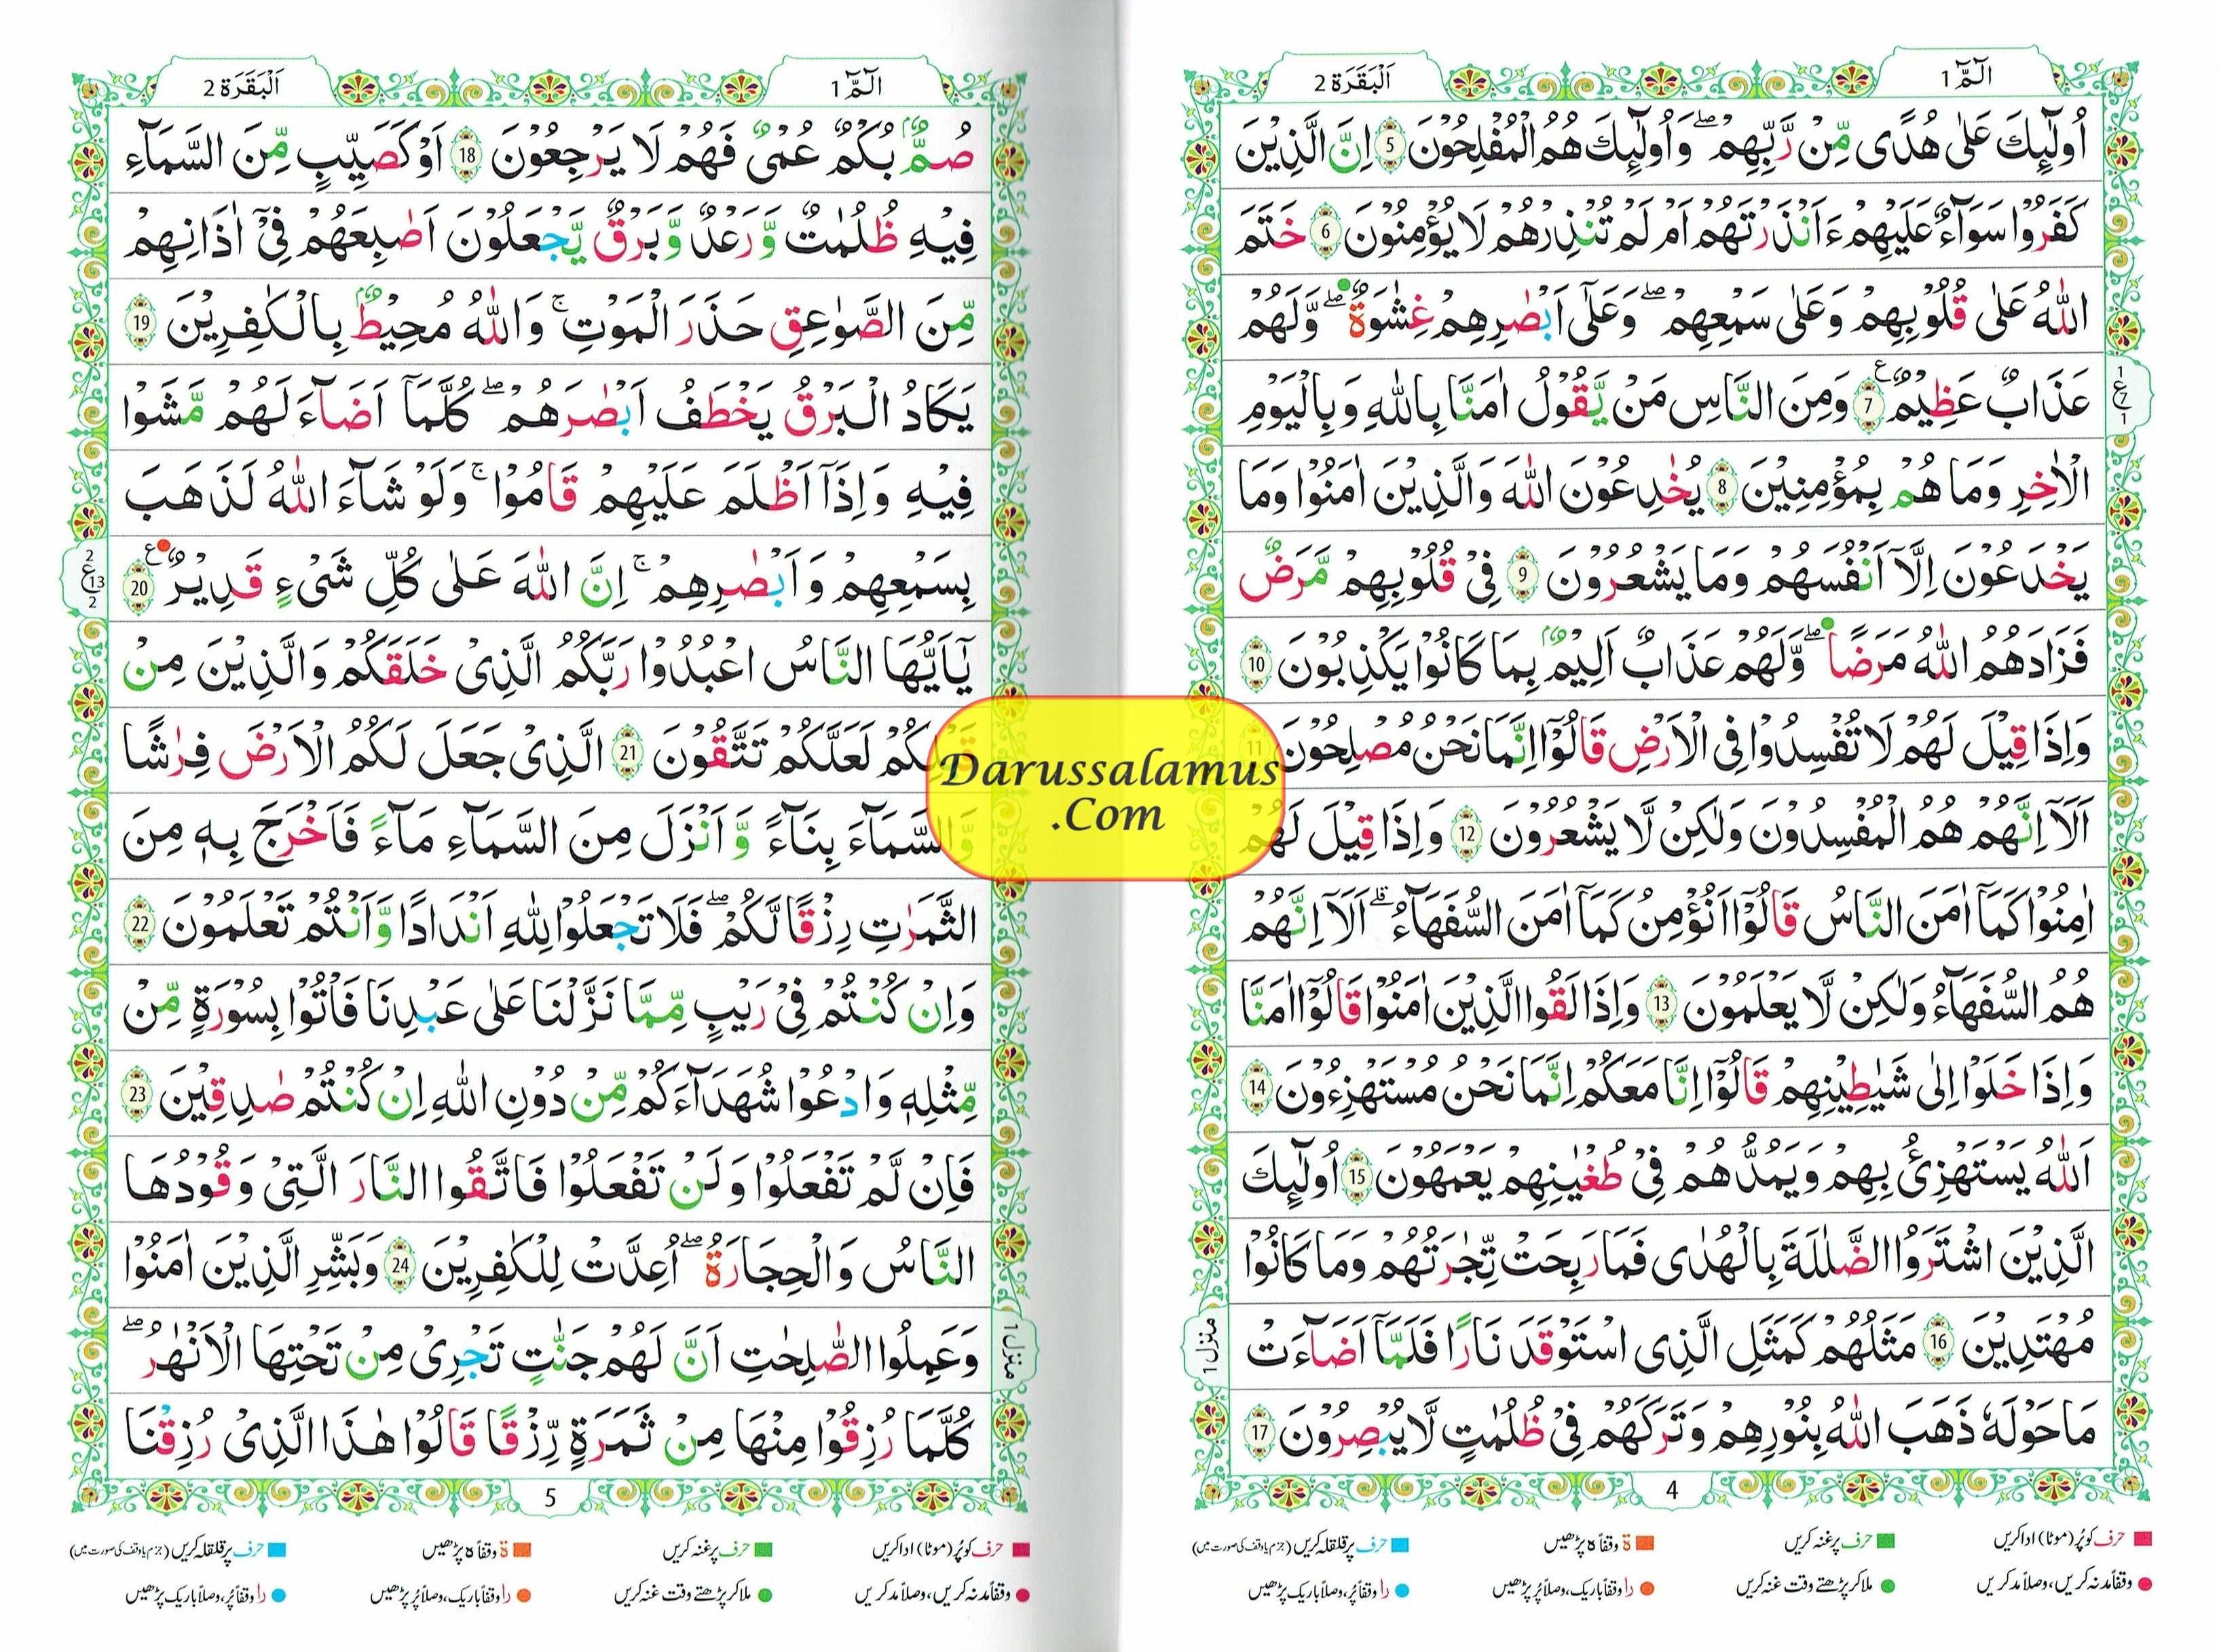 الٓمّٓ 1
اَلْبَقَرَة 2
اُولٰٓئِكَ عَلٰى هُدًى مِّنْ رَّبِّهِمْ ۖ وَاُولٰٓئِكَ هُمُ الْمُفْلِحُوْنَ 5 اِنَّ الَّذِيْنَ
كَفَرُوْا سَوَآءٌ عَلَيْهِمْ ءَاَنْذَرْتَهُمْ اَمْ لَمْ تُنْذِرْهُمْ لَا يُؤْمِنُوْنَ 6 خَتَمَ
اللّٰهُ عَلٰى قُلُوْبِهِمْ وَعَلٰى سَمْعِهِمْ ۖ وَعَلٰٓى اَبْصٰرِهِمْ غِشٰوَةٌ ۖ وَّلَهُمْ
عَذَابٌ عَظِيْمٌ 7 وَمِنَ النَّاسِ مَنْ يَّقُوْلُ اٰمَنَّا بِاللّٰهِ وَبِالْيَوْمِ
الْاٰخِرِ وَمَا هُمْ بِمُؤْمِنِيْنَ 8 يُخٰدِعُوْنَ اللّٰهَ وَالَّذِيْنَ اٰمَنُوْا وَمَا
يَخْدَعُوْنَ اِلَّآ اَنْفُسَهُمْ وَمَا يَشْعُرُوْنَ 9 فِيْ قُلُوْبِهِمْ مَّرَضٌ
فَزَادَهُمُ اللّٰهُ مَرَضًا ۖ وَّلَهُمْ عَذَابٌ اَلِيْمٌ بِمَا كَانُوْا يَكْذِبُوْنَ 10
وَاِذَا قِيْلَ لَهُمْ لَا تُفْسِدُوْا فِى الْاَرْضِ قَالُوْٓا اِنَّمَا نَحْنُ مُصْلِحُوْنَ 11
اَلَآ اِنَّهُمْ هُمُ الْمُفْسِدُوْنَ وَلٰكِنْ لَّا يَشْعُرُوْنَ 12 وَاِذَا قِيْلَ لَهُمْ
اٰمِنُوْا كَمَآ اٰمَنَ النَّاسُ قَالُوْٓا اَنُؤْمِنُ كَمَآ اٰمَنَ السُّفَهَآءُ ۗ اَلَآ اِنَّهُمْ
هُمُ السُّفَهَآءُ وَلٰكِنْ لَّا يَعْلَمُوْنَ 13 وَاِذَا لَقُوا الَّذِيْنَ اٰمَنُوْا قَالُوْٓا اٰمَنَّا
وَاِذَا خَلَوْا اِلٰى شَيٰطِيْنِهِمْ قَالُوْٓا اِنَّا مَعَكُمْ اِنَّمَا نَحْنُ مُسْتَهْزِءُوْنَ 14
اَللّٰهُ يَسْتَهْزِئُ بِهِمْ وَيَمُدُّهُمْ فِيْ طُغْيٰنِهِمْ يَعْمَهُوْنَ 15 اُولٰٓئِكَ
الَّذِيْنَ اشْتَرَوُا الضَّلٰلَةَ بِالْهُدٰى فَمَا رَبِحَتْ تِّجٰرَتُهُمْ وَمَا كَانُوْا
مُهْتَدِيْنَ 16 مَثَلُهُمْ كَمَثَلِ الَّذِى اسْتَوْقَدَ نَارًا فَلَمَّآ اَضَآءَتْ
مَا حَوْلَهٗ ذَهَبَ اللّٰهُ بِنُوْرِهِمْ وَتَرَكَهُمْ فِيْ ظُلُمٰتٍ لَّا يُبْصِرُوْنَ 17
1 ع 7 1
منزل 1
4
حرف کو پُر (موٹا) ادا کریں
حرف پر غنہ کریں
ة وقفاً ہ پڑھیں
حرف پر قلقلہ کریں (جزم یا وقف کی صورت میں)
وقفاً مد نہ کریں، وصلاً مد کریں
ملا کر پڑھتے وقت غنہ کریں
را وقفاً باریک، وصلاً پُر پڑھیں
را وقفاً پُر، وصلاً باریک پڑھیں
الٓمّٓ 1
اَلْبَقَرَة 2
صُمٌّ بُكْمٌ عُمْىٌ فَهُمْ لَا يَرْجِعُوْنَ 18 اَوْ كَصَيِّبٍ مِّنَ السَّمَآءِ
فِيْهِ ظُلُمٰتٌ وَّرَعْدٌ وَّبَرْقٌ يَّجْعَلُوْنَ اَصٰبِعَهُمْ فِيْٓ اٰذَانِهِمْ
مِّنَ الصَّوٰعِقِ حَذَرَ الْمَوْتِ ۚ وَاللّٰهُ مُحِيْطٌ بِالْكٰفِرِيْنَ 19
يَكَادُ الْبَرْقُ يَخْطَفُ اَبْصٰرَهُمْ ۖ كُلَّمَآ اَضَآءَ لَهُمْ مَّشَوْا
فِيْهِ وَاِذَآ اَظْلَمَ عَلَيْهِمْ قَامُوْا ۚ وَلَوْ شَآءَ اللّٰهُ لَذَهَبَ
بِسَمْعِهِمْ وَاَبْصٰرِهِمْ ۚ اِنَّ اللّٰهَ عَلٰى كُلِّ شَىْءٍ قَدِيْرٌ 20
يٰٓاَيُّهَا النَّاسُ اعْبُدُوْا رَبَّكُمُ الَّذِىْ خَلَقَكُمْ وَالَّذِيْنَ مِنْ
قَبْلِكُمْ لَعَلَّكُمْ تَتَّقُوْنَ 21 الَّذِىْ جَعَلَ لَكُمُ الْاَرْضَ فِرٰشًا
وَّالسَّمَآءَ بِنَآءً وَّاَنْزَلَ مِنَ السَّمَآءِ مَآءً فَاَخْرَجَ بِهٖ مِنَ
الثَّمَرٰتِ رِزْقًا لَّكُمْ ۖ فَلَا تَجْعَلُوْا لِلّٰهِ اَنْدَادًا وَّاَنْتُمْ تَعْلَمُوْنَ 22
وَاِنْ كُنْتُمْ فِيْ رَيْبٍ مِّمَّا نَزَّلْنَا عَلٰى عَبْدِنَا فَاْتُوْا بِسُوْرَةٍ مِّنْ
مِّثْلِهٖ وَادْعُوْا شُهَدَآءَكُمْ مِّنْ دُوْنِ اللّٰهِ اِنْ كُنْتُمْ صٰدِقِيْنَ 23
فَاِنْ لَّمْ تَفْعَلُوْا وَلَنْ تَفْعَلُوْا فَاتَّقُوا النَّارَ الَّتِيْ وَقُوْدُهَا
النَّاسُ وَالْحِجَارَةُ ۖ اُعِدَّتْ لِلْكٰفِرِيْنَ 24 وَبَشِّرِ الَّذِيْنَ اٰمَنُوْا
وَعَمِلُوا الصّٰلِحٰتِ اَنَّ لَهُمْ جَنّٰتٍ تَجْرِىْ مِنْ تَحْتِهَا الْاَنْهٰرُ ۖ
كُلَّمَا رُزِقُوْا مِنْهَا مِنْ ثَمَرَةٍ رِّزْقًا قَالُوْا هٰذَا الَّذِىْ رُزِقْنَا
2 ع 13 2
منزل 1
5
حرف کو پُر (موٹا) ادا کریں
حرف پر غنہ کریں
ة وقفاً ہ پڑھیں
حرف پر قلقلہ کریں (جزم یا وقف کی صورت میں)
وقفاً مد نہ کریں، وصلاً مد کریں
ملا کر پڑھتے وقت غنہ کریں
را وقفاً باریک، وصلاً پُر پڑھیں
را وقفاً پُر، وصلاً باریک پڑھیں
Darussalamus
.Com